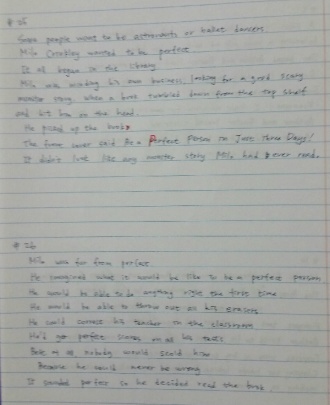 # 25
Some people want to be astronauts or ballet dancers
Milo Crinkley wanted to be perfect
It all began in the library
Milo was minding his own business, looking for a good scary
monster story. When a book tumbled down from the top shelf
and hit him on the head
He picked up the book
The front cover said Be a Perfect Person in Just Three Days!
It didn't look like any monster story Milo had ever read.
# 26
Milo was far from perfect
He imagined what it would be like to be a perfect person
He would be able to do anything right the first time
He would be able to throw out all his erasers
He could correct his teacher in the classroom
He'd get perfect scores on all his tests
Best of all nobody would scold him
Because he would never be wrong
It sounded perfect so he decided read the book